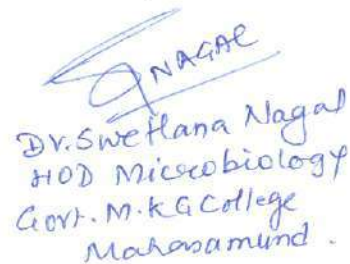 SNAGAL
Dr. Swetlana Nagal
HOD Microbiology
Govt. M.K.G College
Mahasamund.